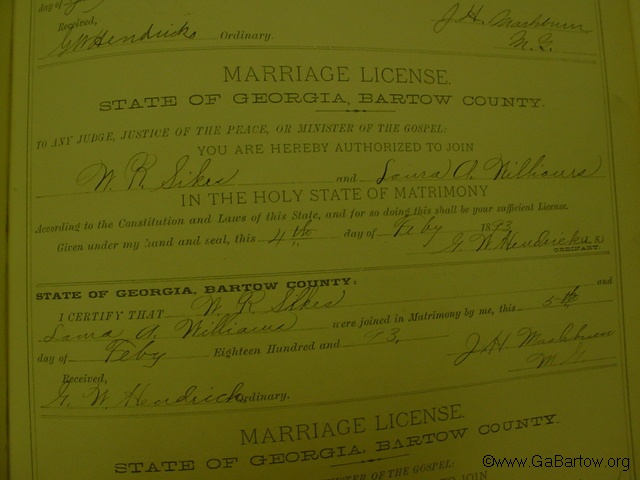 day of
Received,
J. H. Mashburn
G W Hendricks Ordinary.
M. G.
MARRIAGE LICENSE.
STATE OF GEORGIA, BARTOW COUNTY.
TO ANY JUDGE, JUSTICE OF THE PEACE, OR MINISTER OF THE GOSPEL:
YOU ARE HEREBY AUTHORIZED TO JOIN
W. R. Sikes and Laura A. Williams
IN THE HOLY STATE OF MATRIMONY
According to the Constitution and Laws of this State, and for so doing this shall be your sufficient License.
Given under my hand and seal, this 4th day of Feby 1893
G W Hendricks
ORDINARY.
STATE OF GEORGIA, BARTOW COUNTY:
I CERTIFY THAT W. R Sikes and
Laura A. Williams were joined in Matrimony by me, this 5th
day of Feby Eighteen Hundred and 93.
J. H. Mashburn
M G
Received,
G. W. Hendricks Ordinary.
MARRIAGE LICENSE.
STATE OF GEORGIA, BARTOW COUNTY.
MINISTER OF THE GOSPEL:
JOIN
©www.GaBartow.org